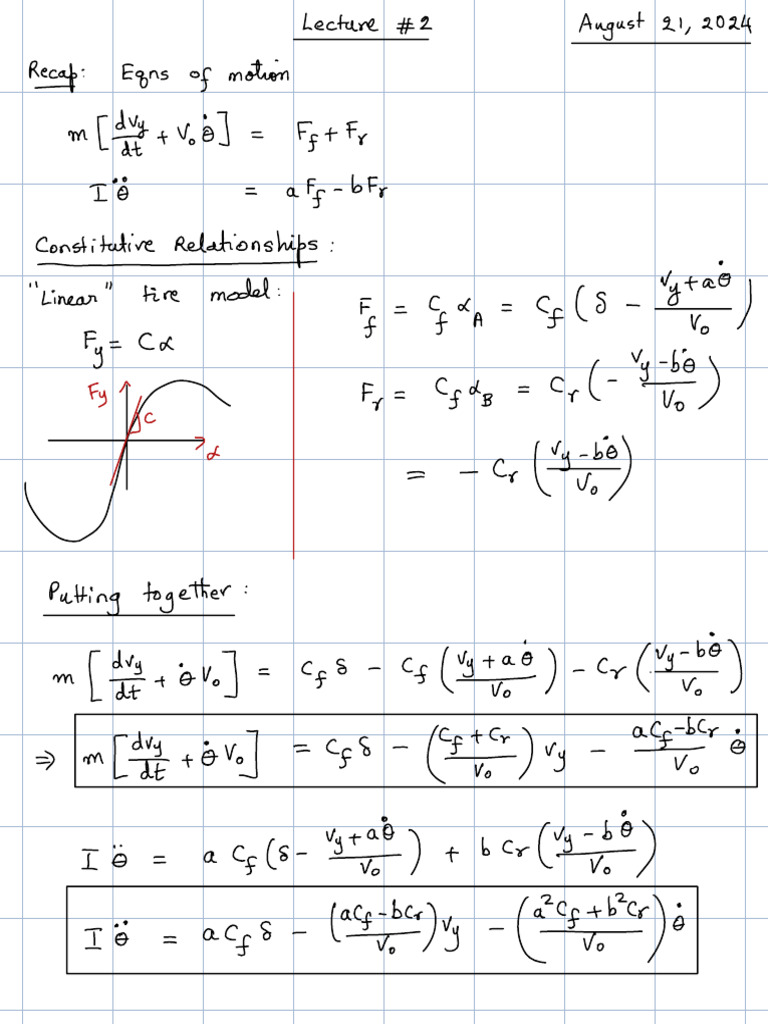 Lecture #2 August 21, 2024
Recap: Eqns of motion
m [dv_y/dt + V₀ θ̇] = F_f + F_r
I θ̈ = a F_f - b F_r
Constitutive Relationships:
"Linear" tire model:
F_y = Cα
F_y
C
α
F_f = C_f α_A = C_f (δ - (v_y + aθ̇)/V₀)
F_r = C_f α_B = C_r (- (v_y - bθ̇)/V₀)
= - C_r ((v_y - bθ̇)/V₀)
Putting together:
m [dv_y/dt + θ̇ V₀] = C_f δ - C_f ((v_y + a θ̇)/V₀) - C_r ((v_y - bθ̇)/V₀)
⇒ m [dv_y/dt + θ̇ V₀] = C_f δ - ((C_f + C_r)/V₀) v_y - (aC_f - bC_r)/V₀ θ̇
I θ̈ = a C_f (δ - (v_y + aθ̇)/V₀) + b C_r ((v_y - b θ̇)/V₀)
I θ̈ = a C_f δ - ((aC_f - bC_r)/V₀) v_y - ((a²C_f + b²C_r)/V₀) θ̇